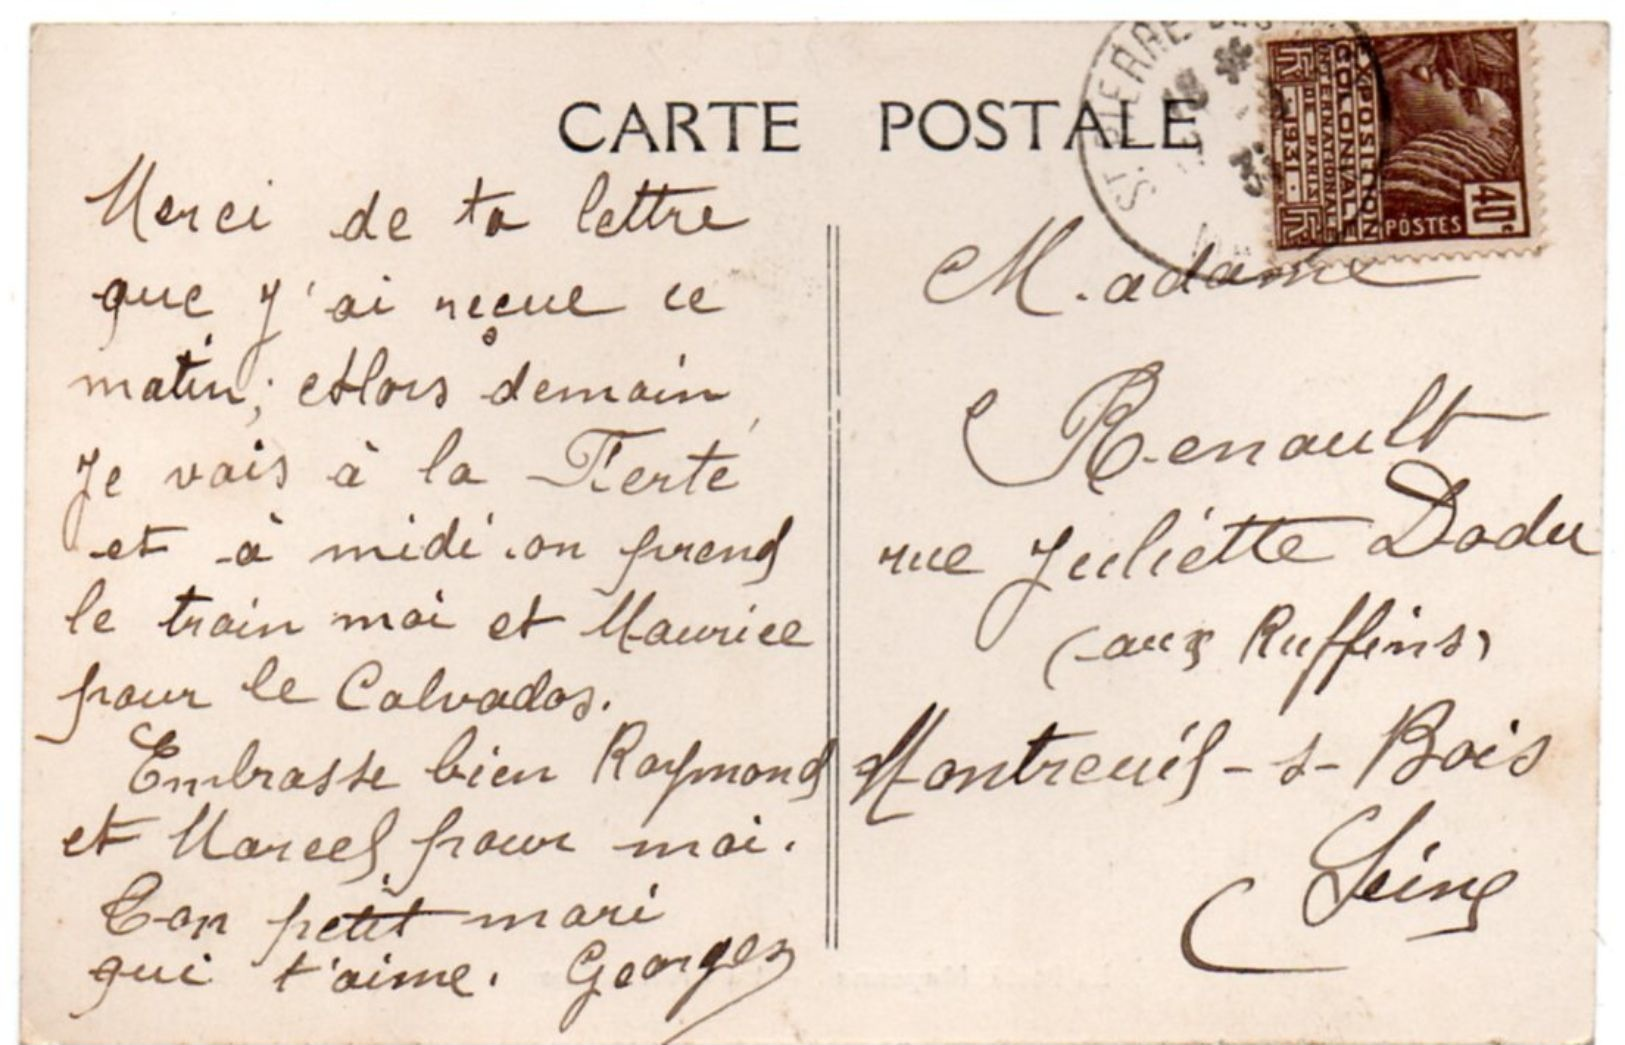 CARTE POSTALE
Merci de ta lettre
que j'ai reçue ce
matin; Alors demain
Je vais à la Ferté
et à midi on prend
le train moi et Maurice
pour le Calvados.
Embrasse bien Raymond
et Marcel pour moi.
Ton petit mari
qui t'aime. Georges
ST PIERRE
EXPOSITION
COLONIALE
INTERNATIONALE
DE PARIS
1931
POSTES
40c
Madame
Renault
rue Juliette Dodu
(aux Ruffins)
Montreuil-s-Bois
Seine